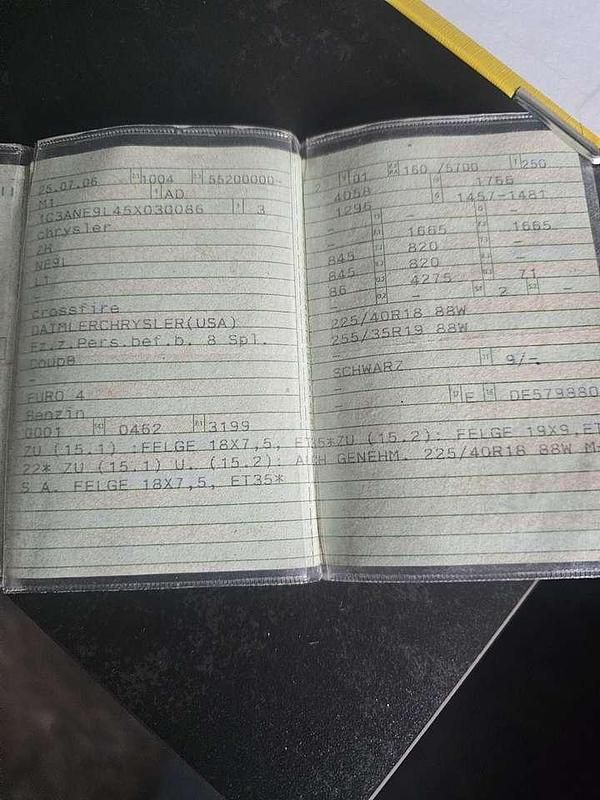 25.07.06 1004 55200000-
M1 AD
1C3ANE9L45X030086 3
chrysler
ZH
NE9L
L1
-
crossfire
DAIMLERCHRYSLER(USA)
Fz.z.Pers.bef.b. 8 Spl.
Coupe
-
EURO 4
Benzin
0001 0462 3199
01 160 /5700 250
4058 1766
1296 - 1457-1481
- - -
- 1665 1665
845 820 -
845 820 -
86 4275 71
- - 2 -
225/40R18 88W
255/35R19 88W
SCHWARZ 9/-
- E DE579880
ZU (15.1) :FELGE 18X7,5, ET35*ZU (15.2): FELGE 19X9,ET
22* ZU (15.1) U. (15.2): AUCH GENEHM. 225/40R18 88W M+
S A. FELGE 18X7,5, ET35*